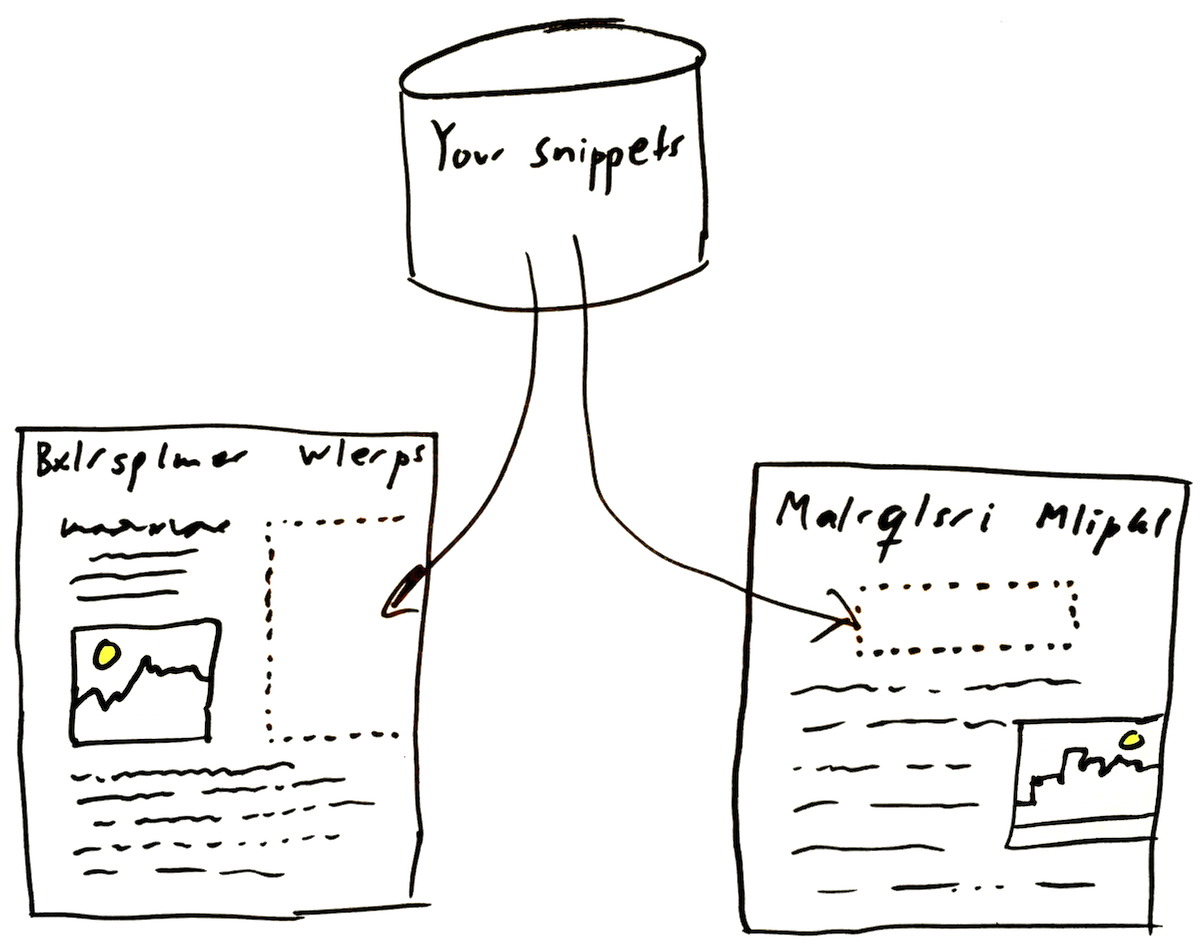 Your snippets
Bxlrsplmer wlerps
Malrqlsri Mlipkl